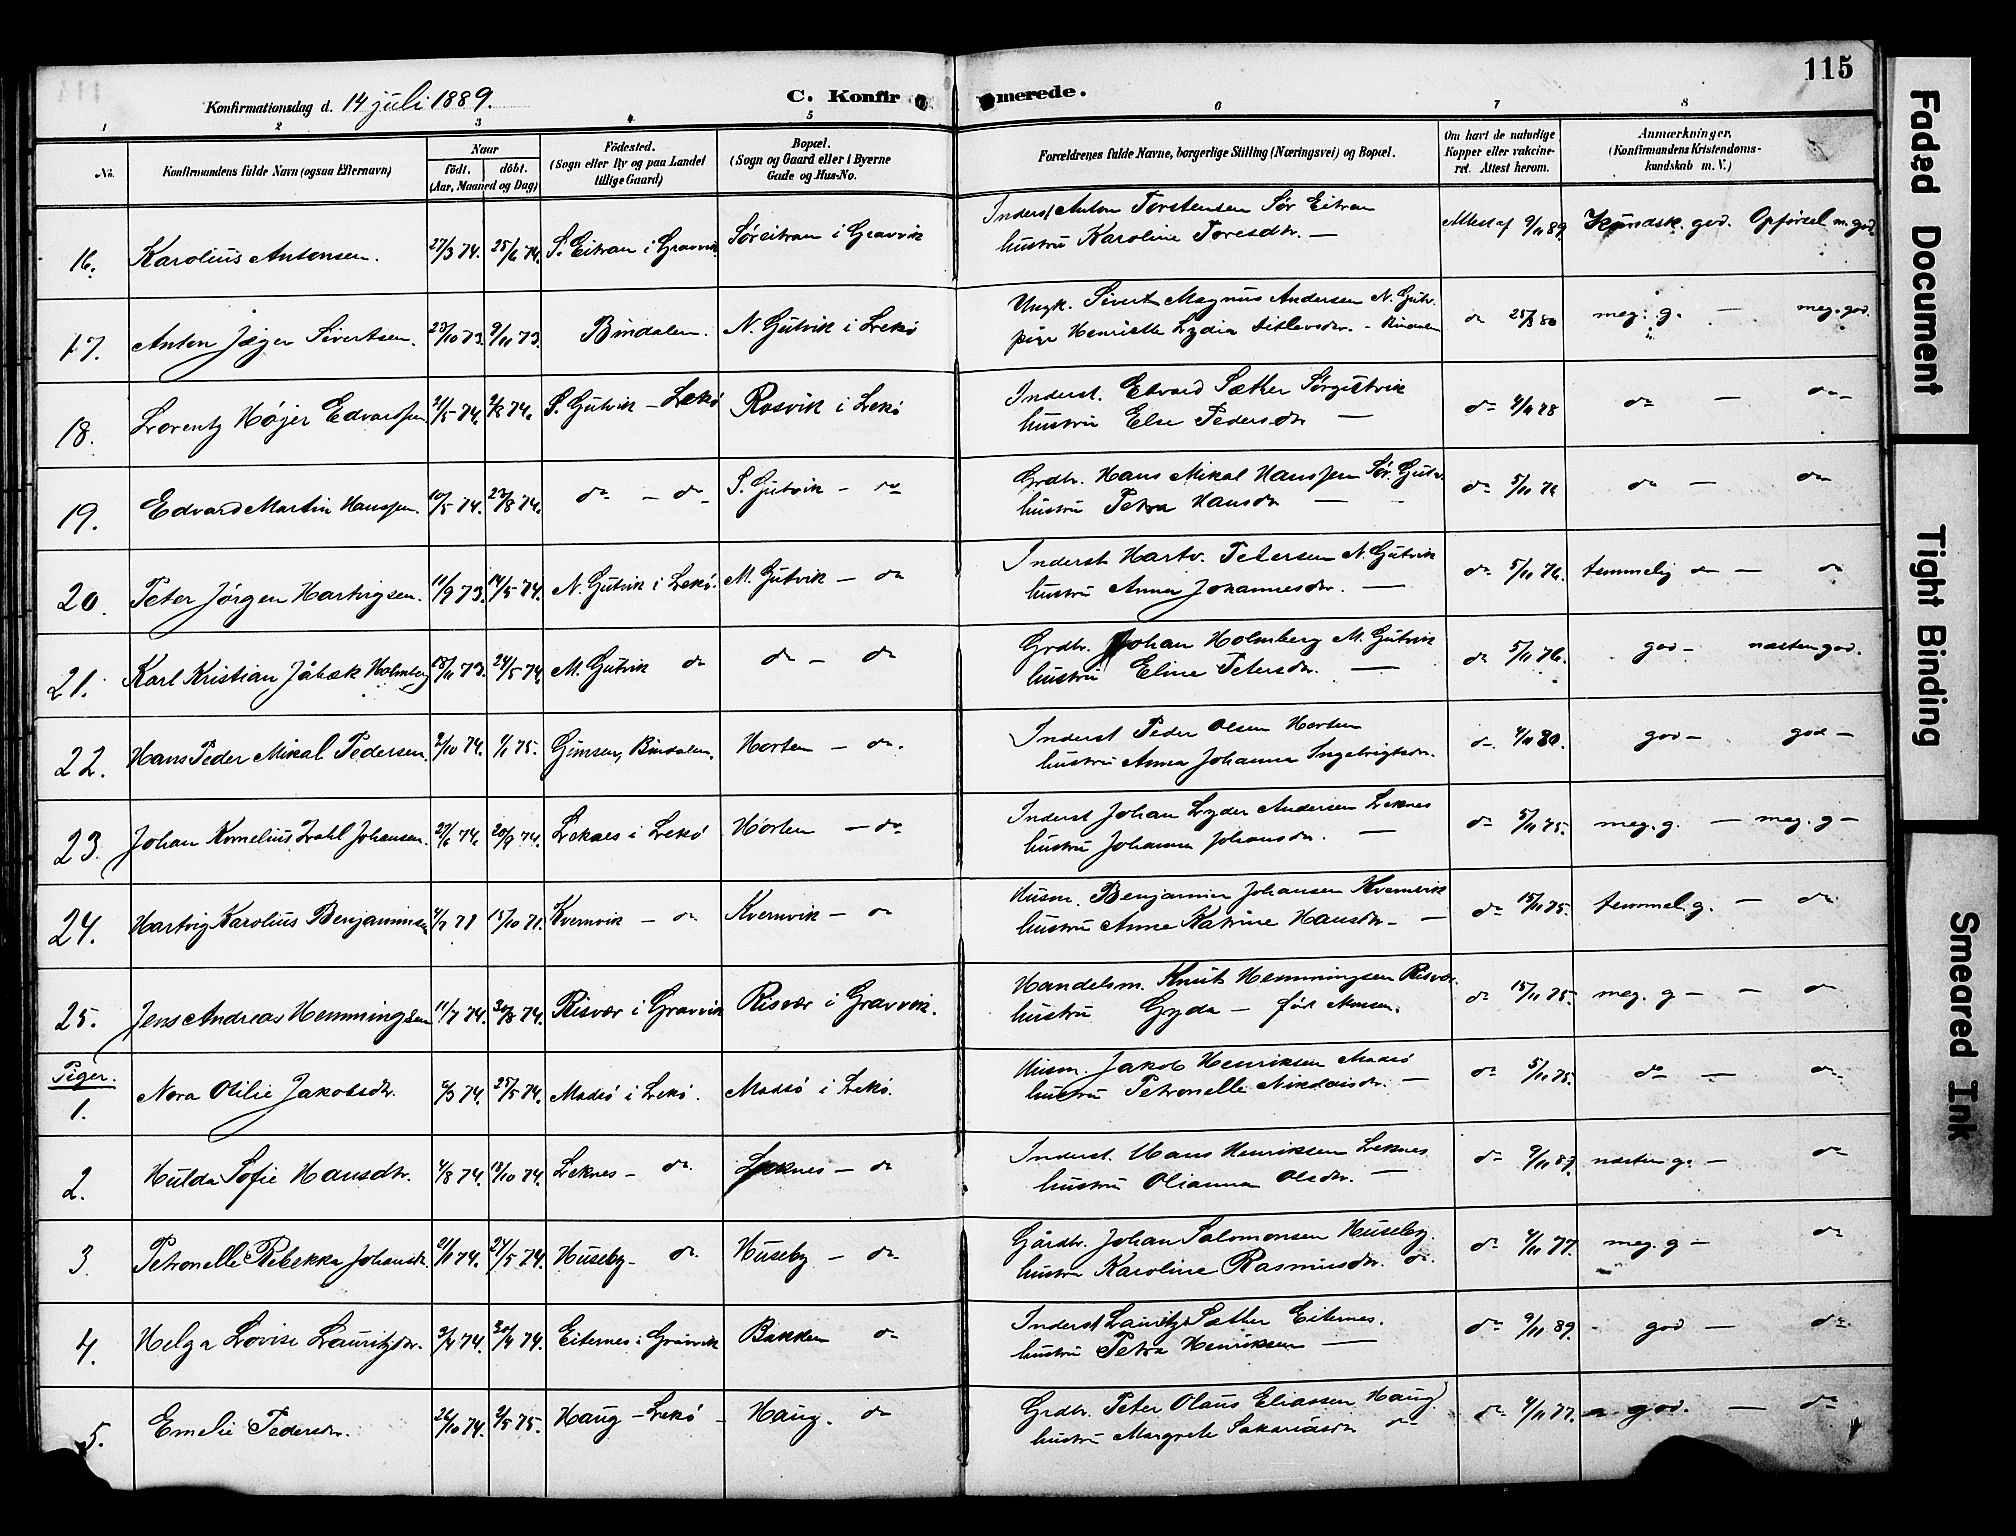 115
Konfirmationsdag d. 14 juli 1889.
C. Konfirmerede.
1 2 3 4 5 6 7 8
No.
Konfirmandens fulde Navn (ogsaa Efternavn)
Naar
født. døbt.
(Aar, Maaned og Dag)
Födested.
(Sogn eller By og paa Landet
tillige Gaard)
Bopæl.
(Sogn og Gaard eller i Byerne
Gade og Hus-No.
Forældrenes fulde Navne, borgerlige Stilling (Næringsvei) og Bopæl.
Om havt de naturlige
Kopper eller vakcine-
ret. Attest herom.
Anmærkninger.
(Konfirmandens Kristendoms-
kundskab m. V.)
16. Karolius Antonsen. 27/3 74. 25/6 74. S. Eitran i Gravvik Søreitran i Gravvik
Inderst Anton Torstensen Sør Eitran
hustru Karoline Toresdtr. —
Attest af 9/11 89. Kundsk. god. Opførsel m. god.
17. Anton Jæger Sivertsen. 23/10 73. 9/11 73. Bindalen. N. Gutvik i Lekø
Ungk. Sivert Magnus Andersen N. Gutv.
pige Henriette Lydia Ditlevsdtr. - Bindalen
do 25/8 80 meg. g. — meg. god.
18. Lorentz Højer Edvardsen 21/5 74. 2/8 74. S. Gutvik - Lekø Rosvik i Lekø
Inderst. Edvard Sæther Sørgutvik
hustru Else Pedersdtr —
do 4/11 78 do — do
19. Edvard Martin Hanssen. 10/5 74. 23/8 74. do - do S. Gutvik - do
Grdbr. Hans Mikal Hanssen Sør. Gutv.
hustru Petra Hansdtr —
do 5/11 76 do — do
20. Peter Jørgen Hartvigsen. 11/9 73. 14/5 74. N. Gutvik i Lekø. M. Gutvik - do
Inderst Hartv. Petersen N. Gutvik
hustru Anna Johannesdtr. —
do 5/11 76. temmelig do — do
21. Karl Kristian Jåbæk Holmberg 18/11 73. 24/5 74. M. Gutvik do do - do
Grdbr. Johan Holmberg M. Gutvik
hustru Eline Petersdtr. —
do 5/11 76. god - næsten god.
22. Hans Peder Mikal Pedersen. 2/10 74. 1/1 75. Gimsen, Bindalen. Horten - do.
Inderst Peder Olsen Horten
hustru Anna Johanna Ingebrigtsdtr.
do 4/11 80. god - god -
23. Johan Kornelius Zahl Johansen. 27/6 74. 20/9 74. Leknes i Lekø Horten - do
Inderst Johan Lyder Andersen Leknes
hustru Johanna Johansdtr. —
do 5/11 75. meg. g. — meg. g -
24. Hartvig Karolius Benjaminsen 15/10 71. Kvernvik - do Kvernvik - do
Husm. Benjamin Johansen Kvernvik
hustru Anne Katrine Hansdtr. —
do 15/11 75. temmel. g. — do
25. Jens Andreas Hemmingsen 11/7 74. 30/8 74. Risvær i Gravvik Risvær i Gravvik.
Handelsm. Knut Hemmingsen Risvær
hustru Gyda - født
do 15/11 75. meg. g - — do
Piger.
1. Nora Otilie Jakobsdtr. 5/3 74. 25/5 74. Madsø i Lekø. Madsø i Lekø.
Husm. Jakob Henriksen Madsø
hustru Petronelle Nikolaisdtr. —
do 5/11 75. do — do
2. Hulda Sofie Hansdtr. 4/8 74. 18/10 74. Leknes - do Leknes - do
Inderst. Hans Henriksen Leknes
hustru Olianna Olsdtr. —
do 9/11 89. næsten g. — do
3 Petronelle Rebekka Johansdtr. 21/1 74. 24/5 74. Huseby - do Huseby - do
Gårdbr. Johan Salomonsen Huseby.
hustru Karoline Rasmusdtr. do.
do 4/11 77. meg. g - do
4. Helga Lovise Lauritzdtr. 3/4 74. 30/4 74. Eiternes i Gravvik Bakken do
Inderst Lauritz Sæther Eiternes.
hustru Petra Henriksen —
do 9/11 89. god — do
5. Emelie Pedersdtr. 26/10 74. 2/5 75. Haug - Lekø - Haug. do
Grdbr. Peter Olaus Eliassen Haug
hustru Margrete Sakariasdtr do
do 4/11 77. god. — do
Faded Document
Tight Binding
Smeared Ink